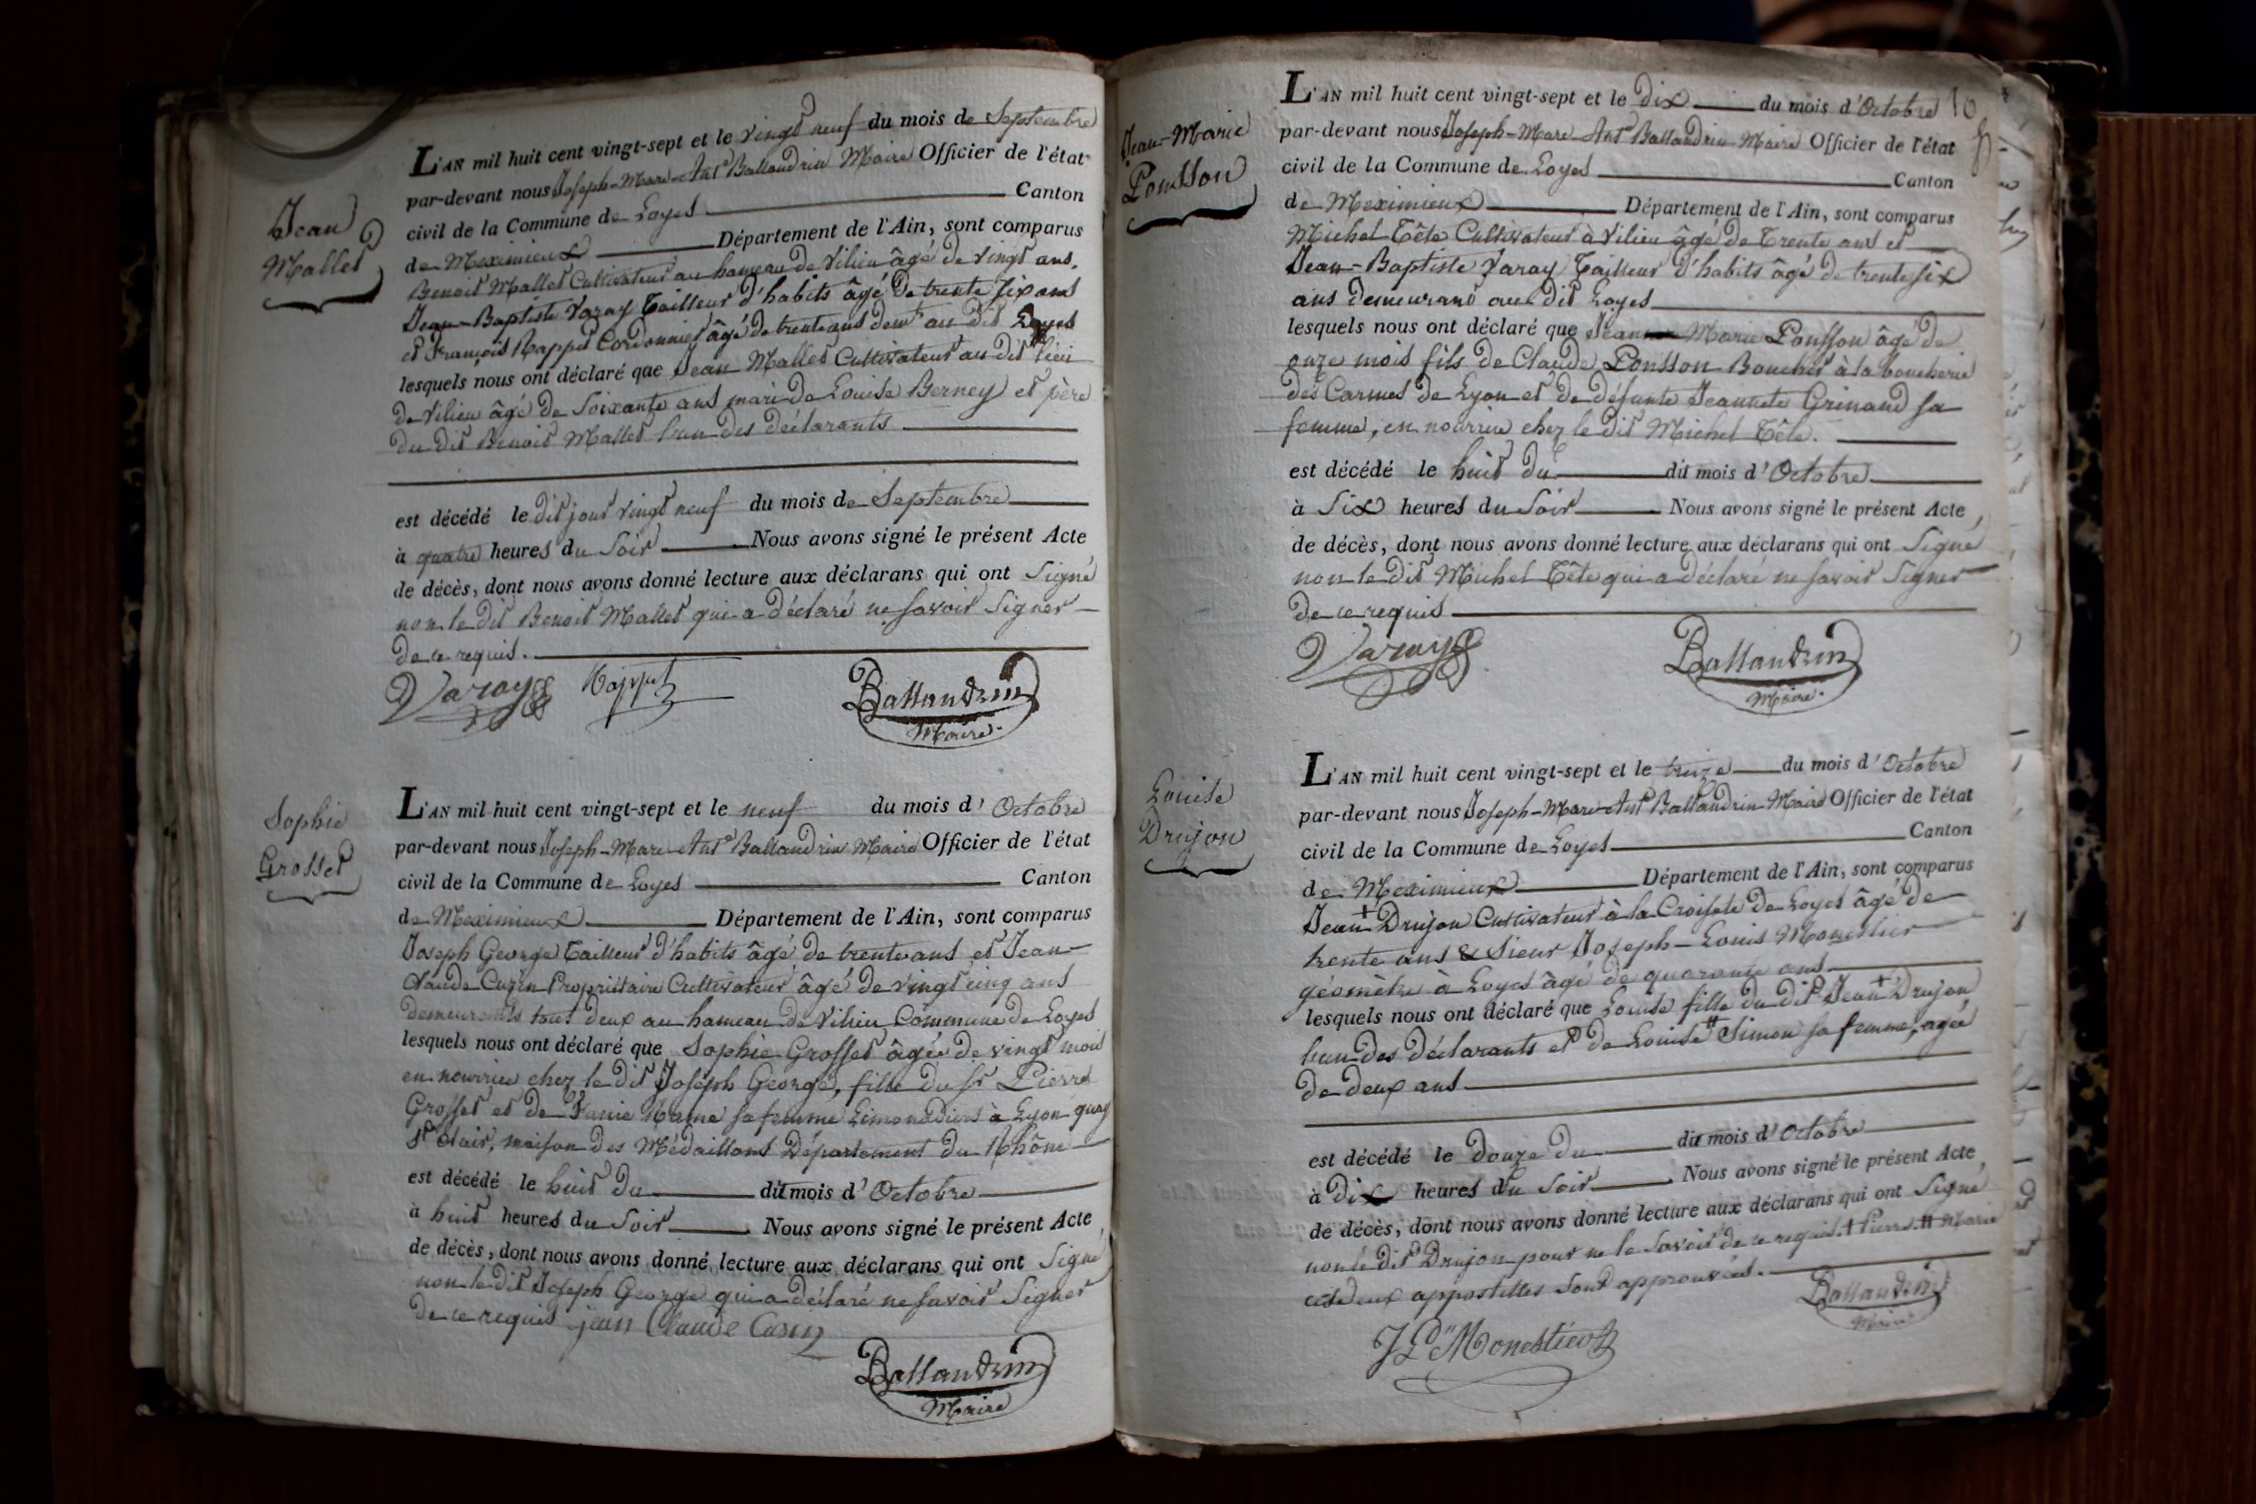 Jean
Mallet
L'AN mil huit cent vingt-sept et le vingt neuf du mois de Septembre
par-devant nous Joseph-Marc-Ant.e Ballandrin Maire Officier de l'état
civil de la Commune de Loyes Canton
de Meximieux Département de l'Ain, sont comparus
Benoit Mallet Cultivateur au hameau de Vilieu âgé de vingt ans,
Jean-Baptiste Varay Tailleur d'habits âgé de trente six ans
et François Rappet Cordonnier âgé de trente ans dem.t au dit Loyes
lesquels nous ont déclaré que Jean Mallet Cultivateur au dit lieu
de Vilieu âgé de Soixante ans mari de Louise Berney et père
du dit Benoit Mallet l'un des déclarants
est décédé le dit jour vingt neuf du mois de Septembre
à quatre heures du Soir Nous avons signé le présent Acte
de décès, dont nous avons donné lecture aux déclarans qui ont Signé
non le dit Benoit Mallet qui a déclaré ne savoir Signer
de ce requis.
Varay Rappet Ballandrin
Maire
Sophie
Grosset
L'AN mil huit cent vingt-sept et le neuf du mois d'Octobre
par-devant nous Joseph-Marc-Ant.e Ballandrin Maire Officier de l'état
civil de la Commune de Loyes Canton
de Meximieux Département de l'Ain, sont comparus
Joseph George Tailleur d'habits âgé de trente ans et Jean-
Claude Cuzin Propriétaire Cultivateur âgé de vingt cinq ans
demeurants tout deux au hameau de Vilieu Commune de Loyes
lesquels nous ont déclaré que Sophie Grosset âgée de vingt mois
en nourrice chez le dit Joseph George, fille du Sr Pierre
Grosset et de Fanie sa femme Limonadiers à Lyon quay
St Clair, maison des Médaillons Département du Rhône
est décédé le huit du dit mois d'Octobre
à huit heures du Soir Nous avons signé le présent Acte
de décès, dont nous avons donné lecture aux déclarans qui ont Signé
non le dit Joseph George qui a déclaré ne savoir Signer
de ce requis jean Claude Cuzin
Ballandrin
Maire
10
Jean-Marie
Ponsson
L'AN mil huit cent vingt-sept et le dix du mois d'Octobre
par-devant nous Joseph-Marc-Ant.e Ballandrin Maire Officier de l'état
civil de la Commune de Loyes Canton
de Meximieux Département de l'Ain, sont comparus
Michel Tête Cultivateur à Vilieu âgé de Trente ans et
Jean-Baptiste Varay Tailleur d'habits âgé de trente six
ans demeurant au dit Loyes
lesquels nous ont déclaré que Jean Marie Ponsson âgé de
onze mois fils de Claude Ponsson Boucher à la boucherie
des Carmes de Lyon et de défunte Jeannete Grinand sa
femme, en nourrice chez le dit Michel Tête.
est décédé le huit du dit mois d'Octobre
à Six heures du Soir Nous avons signé le présent Acte
de décès, dont nous avons donné lecture aux déclarans qui ont Signé
non le dit Michel Tête qui a déclaré ne savoir Signer
de ce requis
Varay Ballandrin
Maire
Louise
Drujon
L'AN mil huit cent vingt-sept et le treize du mois d'Octobre
par-devant nous Joseph-Marc-Ant.e Ballandrin Maire Officier de l'état
civil de la Commune de Loyes Canton
de Meximieux Département de l'Ain, sont comparus
Jean + Drujon Cultivateur à la Croisete de Loyes âgé de
trente ans & Sieur Joseph-Louis Monestier
géomètre à Loyes âgé de quarante ans
lesquels nous ont déclaré que Louise fille du dit Jean + Drujon
l'un des déclarants et de Louise # Simon sa femme, agée
de deux ans
est décédé le douze du dit mois d'Octobre
à dix heures du Soir Nous avons signé le présent Acte
de décès, dont nous avons donné lecture aux déclarans qui ont Signé
non le dit Drujon pour ne le Savoir de ce requis. + Pierre # Marie
ces deux appostilles sont approuvées.
Ballandrin
Maire
J L Monestier